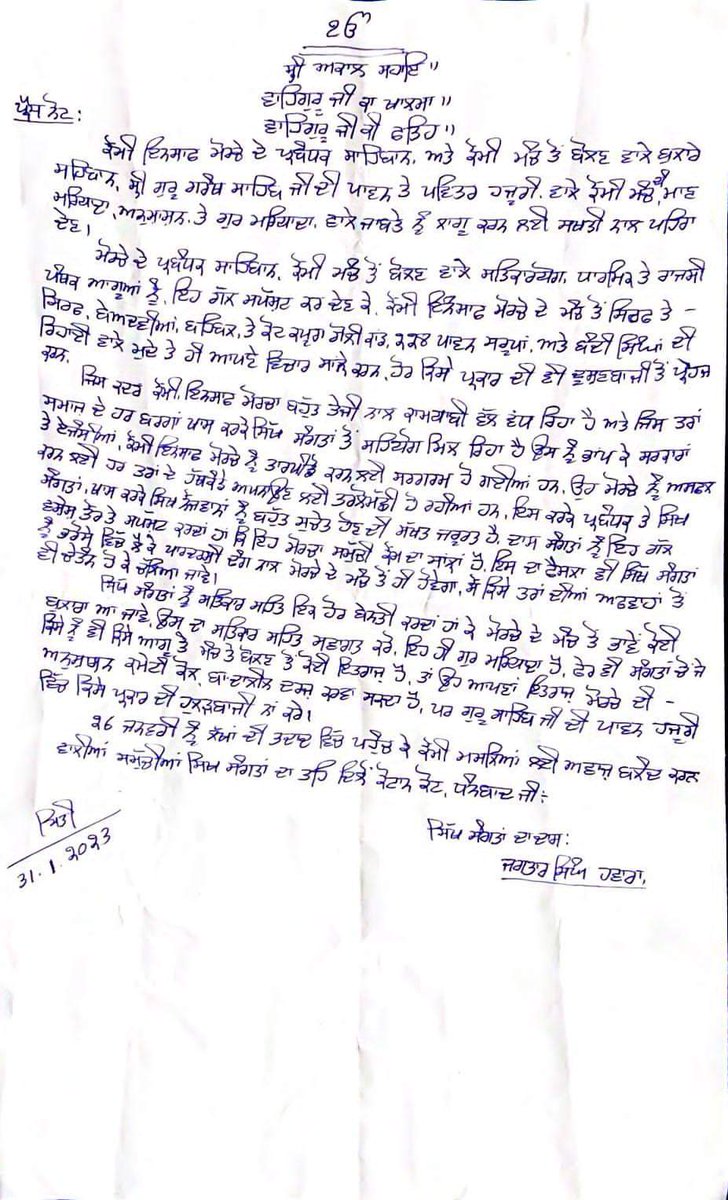 ੴ
ਸ੍ਰੀ ਅਕਾਲ ਸਹਾਇ"
ਵਾਹਿਗੁਰੂ ਜੀ ਕਾ ਖਾਲਸਾ॥
ਪ੍ਰੈਸ ਨੋਟ:
ਵਾਹਿਗੁਰੂ ਜੀ ਕੀ ਫਤਿਹ"
ਕੌਮੀ ਇਨਸਾਫ ਮੋਰਚੇ ਦੇ ਪ੍ਰਬੰਧਕ ਸਾਹਿਬਾਨ, ਅਤੇ ਕੌਮੀ ਮੰਚ ਤੋਂ ਬੋਲਣ ਵਾਲੇ ਬੁਲਾਰੇ
ਸਾਹਿਬਾਨ, ਸ੍ਰੀ ਗੁਰੂ ਗਰੰਥ ਸਾਹਿਬ ਜੀ ਦੀ ਪਾਵਨ ਤੇ ਪਵਿੱਤਰ ਹਜ਼ੂਰੀ ਵਾਲੇ ਕੌਮੀ ਮੰਚ ਦੀ ਮਾਣ
ਮਰਿਯਾਦਾ, ਅਨੁਸਾਸ਼ਨ, ਤੇ ਗੁਰ ਮਰਿਯਾਦਾ, ਵਾਲੇ ਜਾਬਤੇ ਨੂੰ ਲਾਗੂ ਕਰਨ ਲਈ ਸਖਤੀ ਨਾਲ ਪਹਿਰਾ
ਦੇਣ।
ਮੋਰਚੇ ਦੇ ਪ੍ਰਬੰਧਕ ਸਾਹਿਬਾਨ, ਕੌਮੀ ਮੰਚ ਤੋਂ ਬੋਲਣ ਵਾਲੇ ਸਤਿਕਾਰਯੋਗ, ਧਾਰਮਿਕ ਤੇ ਰਾਜਸੀ
ਪੰਥਕ ਆਗੂਆਂ ਨੂੰ, ਇਹ ਗੱਲ ਸਪੱਸ਼ਟ ਕਰ ਦੇਣ ਕੇ, ਕੌਮੀ ਇਨਸਾਫ ਮੋਰਚੇ ਦੇ ਮੰਚ ਤੋਂ ਸਿਰਫ ਤੇ -
ਸਿਰਫ, ਬੇਅਦਬੀਆਂ, ਬਹਿਬਲ, ਤੇ ਕੋਟ ਕਪੂਰਾ ਗੋਲੀ ਕਾਂਡ, 328 ਪਾਵਨ ਸਰੂਪਾਂ, ਅਤੇ ਬੰਦੀ ਸਿੰਘਾਂ ਦੀ
ਰਿਹਾਈ ਵਾਲੇ ਮੁਦੇ ਤੇ ਹੀ ਆਪਣੇ ਵਿਚਾਰ ਸਾਂਝੇ ਕਰਨ, ਹੋਰ ਕਿਸੇ ਪ੍ਰਕਾਰ ਦੀ ਵੀ ਦੂਸ਼ਣਬਾਜੀ ਤੋਂ ਪ੍ਰਹੇਜ
ਕਰਨ,
ਜਿਸ ਕਦਰ ਕੌਮੀ, ਇਨਸਾਫ ਮੋਰਚਾ ਬਹੁੱਤ ਤੇਜੀ ਨਾਲ ਕਾਮਯਾਬੀ ਵੱਲ ਵੱਧ ਰਿਹਾ ਹੈ ਅਤੇ ਜਿਸ ਤਰਾਂ
ਸਮਾਜ ਦੇ ਹਰ ਬਰਗਾਂ ਖਾਸ ਕਰਕੇ ਸਿੱਖ ਸੰਗਤਾਂ ਤੋਂ ਸਹਿਯੋਗ ਮਿਲ ਰਿਹਾ ਹੈ ਉਸ ਨੂੰ ਭਾਂਪ ਕੇ ਸਰਕਾਰਾਂ
ਤੇ ਏਜੰਸੀਆਂ, ਕੌਮੀ ਇਨਸਾਫ ਮੋਰਚੇ ਨੂੰ ਤਾਰਪੀਡੋ ਕਰਨ ਲਈ ਸਰਗਰਮ ਹੋ ਗਈਆਂ ਹਨ, ਉਹ ਮੋਰਚੇ ਨੂੰ ਅਸਫਲ
ਕਰਨ ਲਈ ਹਰ ਤਰਾਂ ਦੇ ਹੱਥਕੰਡੇ ਅਪਨਾਉਣ ਲਈ ਤਰਲੋਮੱਛੀ ਹੋ ਰਹੀਆਂ ਹਨ, ਇਸ ਕਰਕੇ ਪ੍ਰਬੰਧਕ ਤੇ ਸਿਖ
ਸੰਗਤਾਂ, ਖਾਸ ਕਰਕੇ ਸਿਖ ਨੌਜਵਾਨਾਂ ਨੂੰ ਬਹੁੱਤ ਸੁਚੇਤ ਹੋਣ ਦੀ ਸੱਖਤ ਜਰੂਰਤ ਹੈ, ਦਾਸ ਸੰਗਤਾਂ ਨੂੰ ਇਹ ਗੱਲ
ਵਿਸ਼ੇਸ਼ ਤੌਰ ਤੇ ਸਪੱਸ਼ਟ ਕਰਦਾਂ ਹਾਂ ਕਿ ਇਹ ਮੋਰਚਾ ਸਮੁੱਚੀ ਕੌਮ ਦਾ ਸਾਂਝਾ ਹੈ, ਇਸ ਦਾ ਫੈਸਲਾ ਵੀ ਸਿੱਖ ਸੰਗਤਾਂ
ਨੂੰ ਭਰੋਸੇ ਵਿੱਚ ਲੈ ਕੇ ਪਾਰਦਰਸ਼ੀ ਢੰਗ ਨਾਲ ਮੋਰਚੇ ਦੇ ਮੰਚ ਤੋਂ ਹੀ ਹੋਵੇਗਾ, ਸੋ ਕਿਸੇ ਤਰਾਂ ਦੀਆਂ ਅਫਵਾਹਾਂ ਤੋਂ
ਵੀ ਚੇਤੰਨ ਹੋ ਕੇ ਚੱਲਿਆ ਜਾਵੇ।
ਸਿੱਖ ਸੰਗਤਾਂ ਨੂੰ ਸਤਿਕਾਰ ਸਹਿਤ ਇਕ ਹੋਰ ਬੇਨਤੀ ਕਰਦਾਂ ਹਾਂ ਕੇ ਮੋਰਚੇ ਦੇ ਮੰਚ ਤੇ ਭਾਂਵੇ ਕੋਈ
ਬੁਲਾਰਾ ਆ ਜਾਵੇ, ਉਸ ਦਾ ਸਤਿਕਾਰ ਸਹਿਤ ਸਵਾਗਤ ਕਰੋ, ਇਹ ਹੀ ਗੁਰ ਮਰਿਯਾਦਾ ਹੈ, ਫੇਰ ਵੀ ਸੰਗਤਾਂ ਚੋਂ ਜੇ
ਕਿਸੇ ਨੂੰ ਵੀ ਕਿਸੇ ਆਗੂ ਤੇ ਮੰਚ ਤੇ ਬੋਲਣ ਤੋਂ ਕੋਈ ਇਤਰਾਜ਼ ਹੈ, ਤਾਂ ਉਹ ਆਪਣਾ ਇਤਰਾਜ਼ ਮੋਰਚੇ ਦੀ -
ਅਨੁਸਾਸ਼ਨ ਕਮੇਟੀ ਕੋਲ, ਬਾ ਦਲੀਲ ਦਰਜ਼ ਕਰਵਾ ਸਕਦਾ ਹੈ, ਪਰ ਗੁਰੂ ਸਾਹਿਬ ਜੀ ਦੀ ਪਾਵਨ ਹਜ਼ੂਰੀ
ਵਿੱਚ ਕਿਸੇ ਪ੍ਰਕਾਰ ਦੀ ਹੁਲੜਬਾਜੀ ਨਾਂ ਕਰੇ।
੨੬ ਜਨਵਰੀ ਨੂੰ ਲੱਖਾਂ ਦੀ ਤਦਾਦ ਵਿੱਚ ਪਹੁੰਚ ਕੇ ਕੌਮੀ ਮਸਲਿਆਂ ਲਈ ਅਵਾਜ਼ ਬੁਲੰਦ ਕਰਨ
ਵਾਲੀਆਂ ਸਮੁੱਚੀਆਂ ਸਿਖ ਸੰਗਤਾਂ ਦਾ ਤਹਿ ਦਿਲੋਂ ਕੋਟਾਨ ਕੋਟ, ਧੰਨਬਾਦ ਜੀ:
ਮਿਤੀ
31.1.2023
ਸਿੱਖ ਸੰਗਤਾਂ ਦਾ ਦਾਸ:
ਜਗਤਾਰ ਸਿੰਘ ਹਵਾਰਾ,